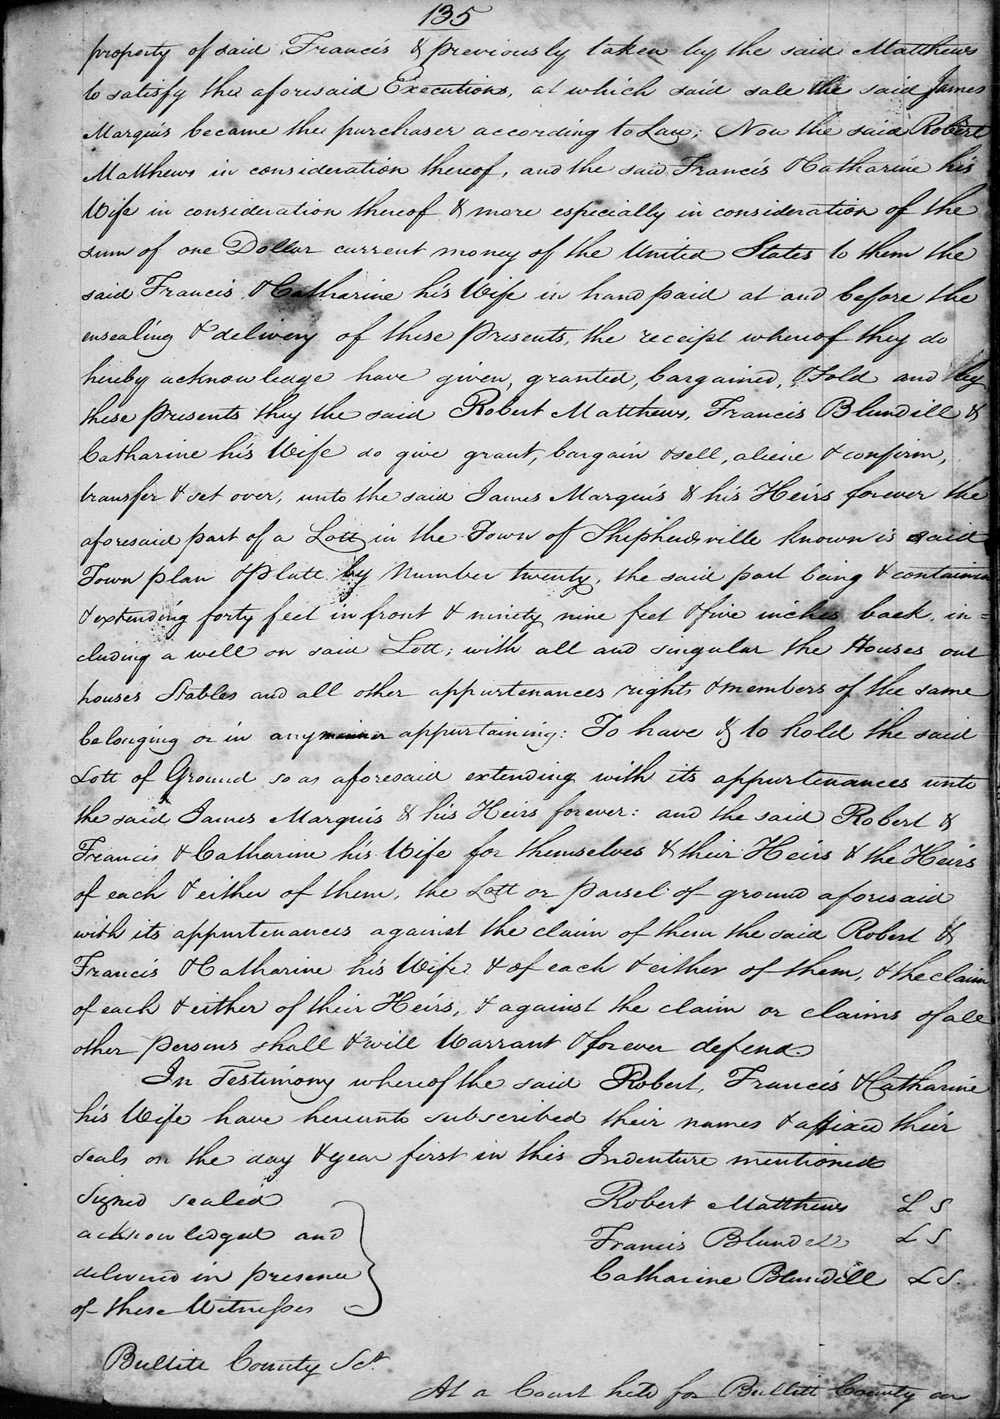 135
property of said Francis & previously taken by the said Matthews
to satisfy the aforesaid Executions, at which said sale the said James
Marquis became the purchaser according to Law; Now the said Robert
Matthews in consideration thereof, and the said Francis & Catharine his
Wife in consideration thereof & more especially in consideration of the
sum of one Dollar current money of the United States to them the
said Francis & Catharine his Wife in hand paid at and before the
ensealing & delivery of these presents, the receipt whereof they do
hereby acknowledge have given, granted, bargained, & sold and by
these presents they the said Robert Matthews, Francis Blundill &
Catharine his Wife do give grant, bargain & sell, aliene & confirm,
transfer & set over, unto the said James Marquis & his Heirs forever the
aforesaid part of a Lott in the Town of Shipherdsville known is said
Town plan & platt by Number twenty, the said part being & containing
& extending forty feet in front & ninety nine feet & five inches back, in=
cluding a well on said Lott; with all and singular the Houses out
houses Stables and all other appurtenances rights & members of the same
belonging or in any manner appurtaining: To have & to hold the said
Lott of Ground so as aforesaid extending with its appurtenances unto
the said James Marquis & his Heirs forever: and the said Robert &
Francis & Catharine his Wife for themselves & their Heirs & the Heirs
of each & either of them, the Lott or parsel of ground aforesaid
with its appurtenances against the claim of them the said Robert &
Francis & Catharine his Wife & of each & either of them, & the claim
of each & either of their Heirs, & against the claim or claims of all
other persons shall & will Warrant & forever defend.
In Testimony whereof the said Robert, Francis & Catharine
his Wife have hereunto subscribed their names & affixed their
seals on the day & year first in this Indenture mentioned
Signed sealed
acknowledged and
delivered in presence
of these Witnesses
Robert Matthews L S
Francis Blundell L S
Catharine Blundill L S.
Bullitt County Sct.
At a Court held for Bullitt County on